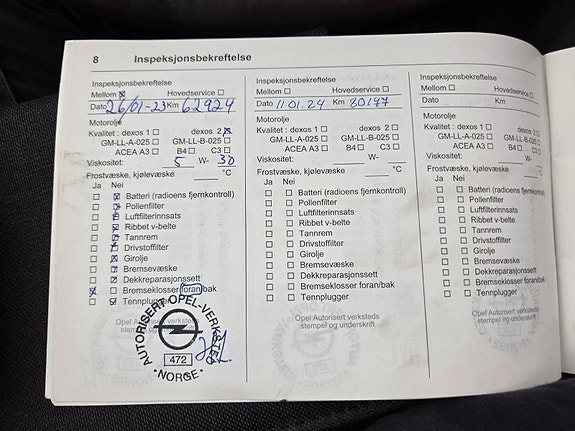 8 Inspeksjonsbekreftelse
Inspeksjonsbekreftelse
Mellom ☒ Hovedservice ☐
Dato 26/01-23 Km 62924
Motorolje
Kvalitet : dexos 1 ☐ dexos 2 ☒
GM-LL-A-025 ☐ GM-LL-B-025 ☐
ACEA A3 ☐ B4 ☐ C3 ☐
Viskositet: 5 W- 30
Frostvæske, kjølevæske °C
Ja Nei
☐ ☒ Batteri (radioens fjernkontroll)
☐ ☒ Pollenfilter
☐ ☒ Luftfilterinnsats
☐ ☒ Ribbet v-belte
☐ ☒ Tannrem
☐ ☒ Drivstoffilter
☐ ☒ Girolje
☐ ☒ Bremsevæske
☐ ☒ Dekkreparasjonssett
☒ ☐ Bremseklosser foran/bak
☐ ☒ Tennplugger
AUTORISERT OPEL-VERKSTED
472
• NORGE •
Inspeksjonsbekreftelse
Mellom ☐ Hovedservice ☐
Dato 11.01.24 Km 80147
Motorolje
Kvalitet : dexos 1 ☐ dexos 2 ☐
GM-LL-A-025 ☐ GM-LL-B-025 ☐
ACEA A3 ☐ B4 ☐ C3 ☐
Viskositet: W-
Frostvæske, kjølevæske °C
Ja Nei
☐ ☐ Batteri (radioens fjernkontroll)
☐ ☐ Pollenfilter
☐ ☐ Luftfilterinnsats
☐ ☐ Ribbet v-belte
☐ ☐ Tannrem
☐ ☐ Drivstoffilter
☐ ☐ Girolje
☐ ☐ Bremsevæske
☐ ☐ Dekkreparasjonssett
☐ ☐ Bremseklosser foran/bak
☐ ☐ Tennplugger
Opel Autorisert verksteds
stempel og underskrift
Inspeksjonsbekreftelse
Mellom ☐ Hovedservice ☐
Dato Km
Motorolje
Kvalitet : dexos 1 ☐ dexos 2 ☐
GM-LL-A-025 ☐ GM-LL-B-025 ☐
ACEA A3 ☐ B4 ☐ C3 ☐
Viskositet: W-
Frostvæske, kjølevæske °C
Ja Nei
☐ ☐ Batteri (radioens fjernkontroll)
☐ ☐ Pollenfilter
☐ ☐ Luftfilterinnsats
☐ ☐ Ribbet v-belte
☐ ☐ Tannrem
☐ ☐ Drivstoffilter
☐ ☐ Girolje
☐ ☐ Bremsevæske
☐ ☐ Dekkreparasjonssett
☐ ☐ Bremseklosser foran/bak
☐ ☐ Tennplugger
Opel Autorisert verksteds
stempel og underskrift